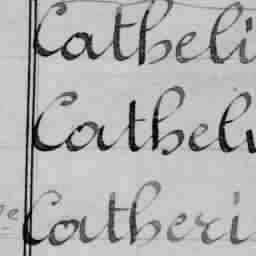 Catheli
Catheli
Catheri